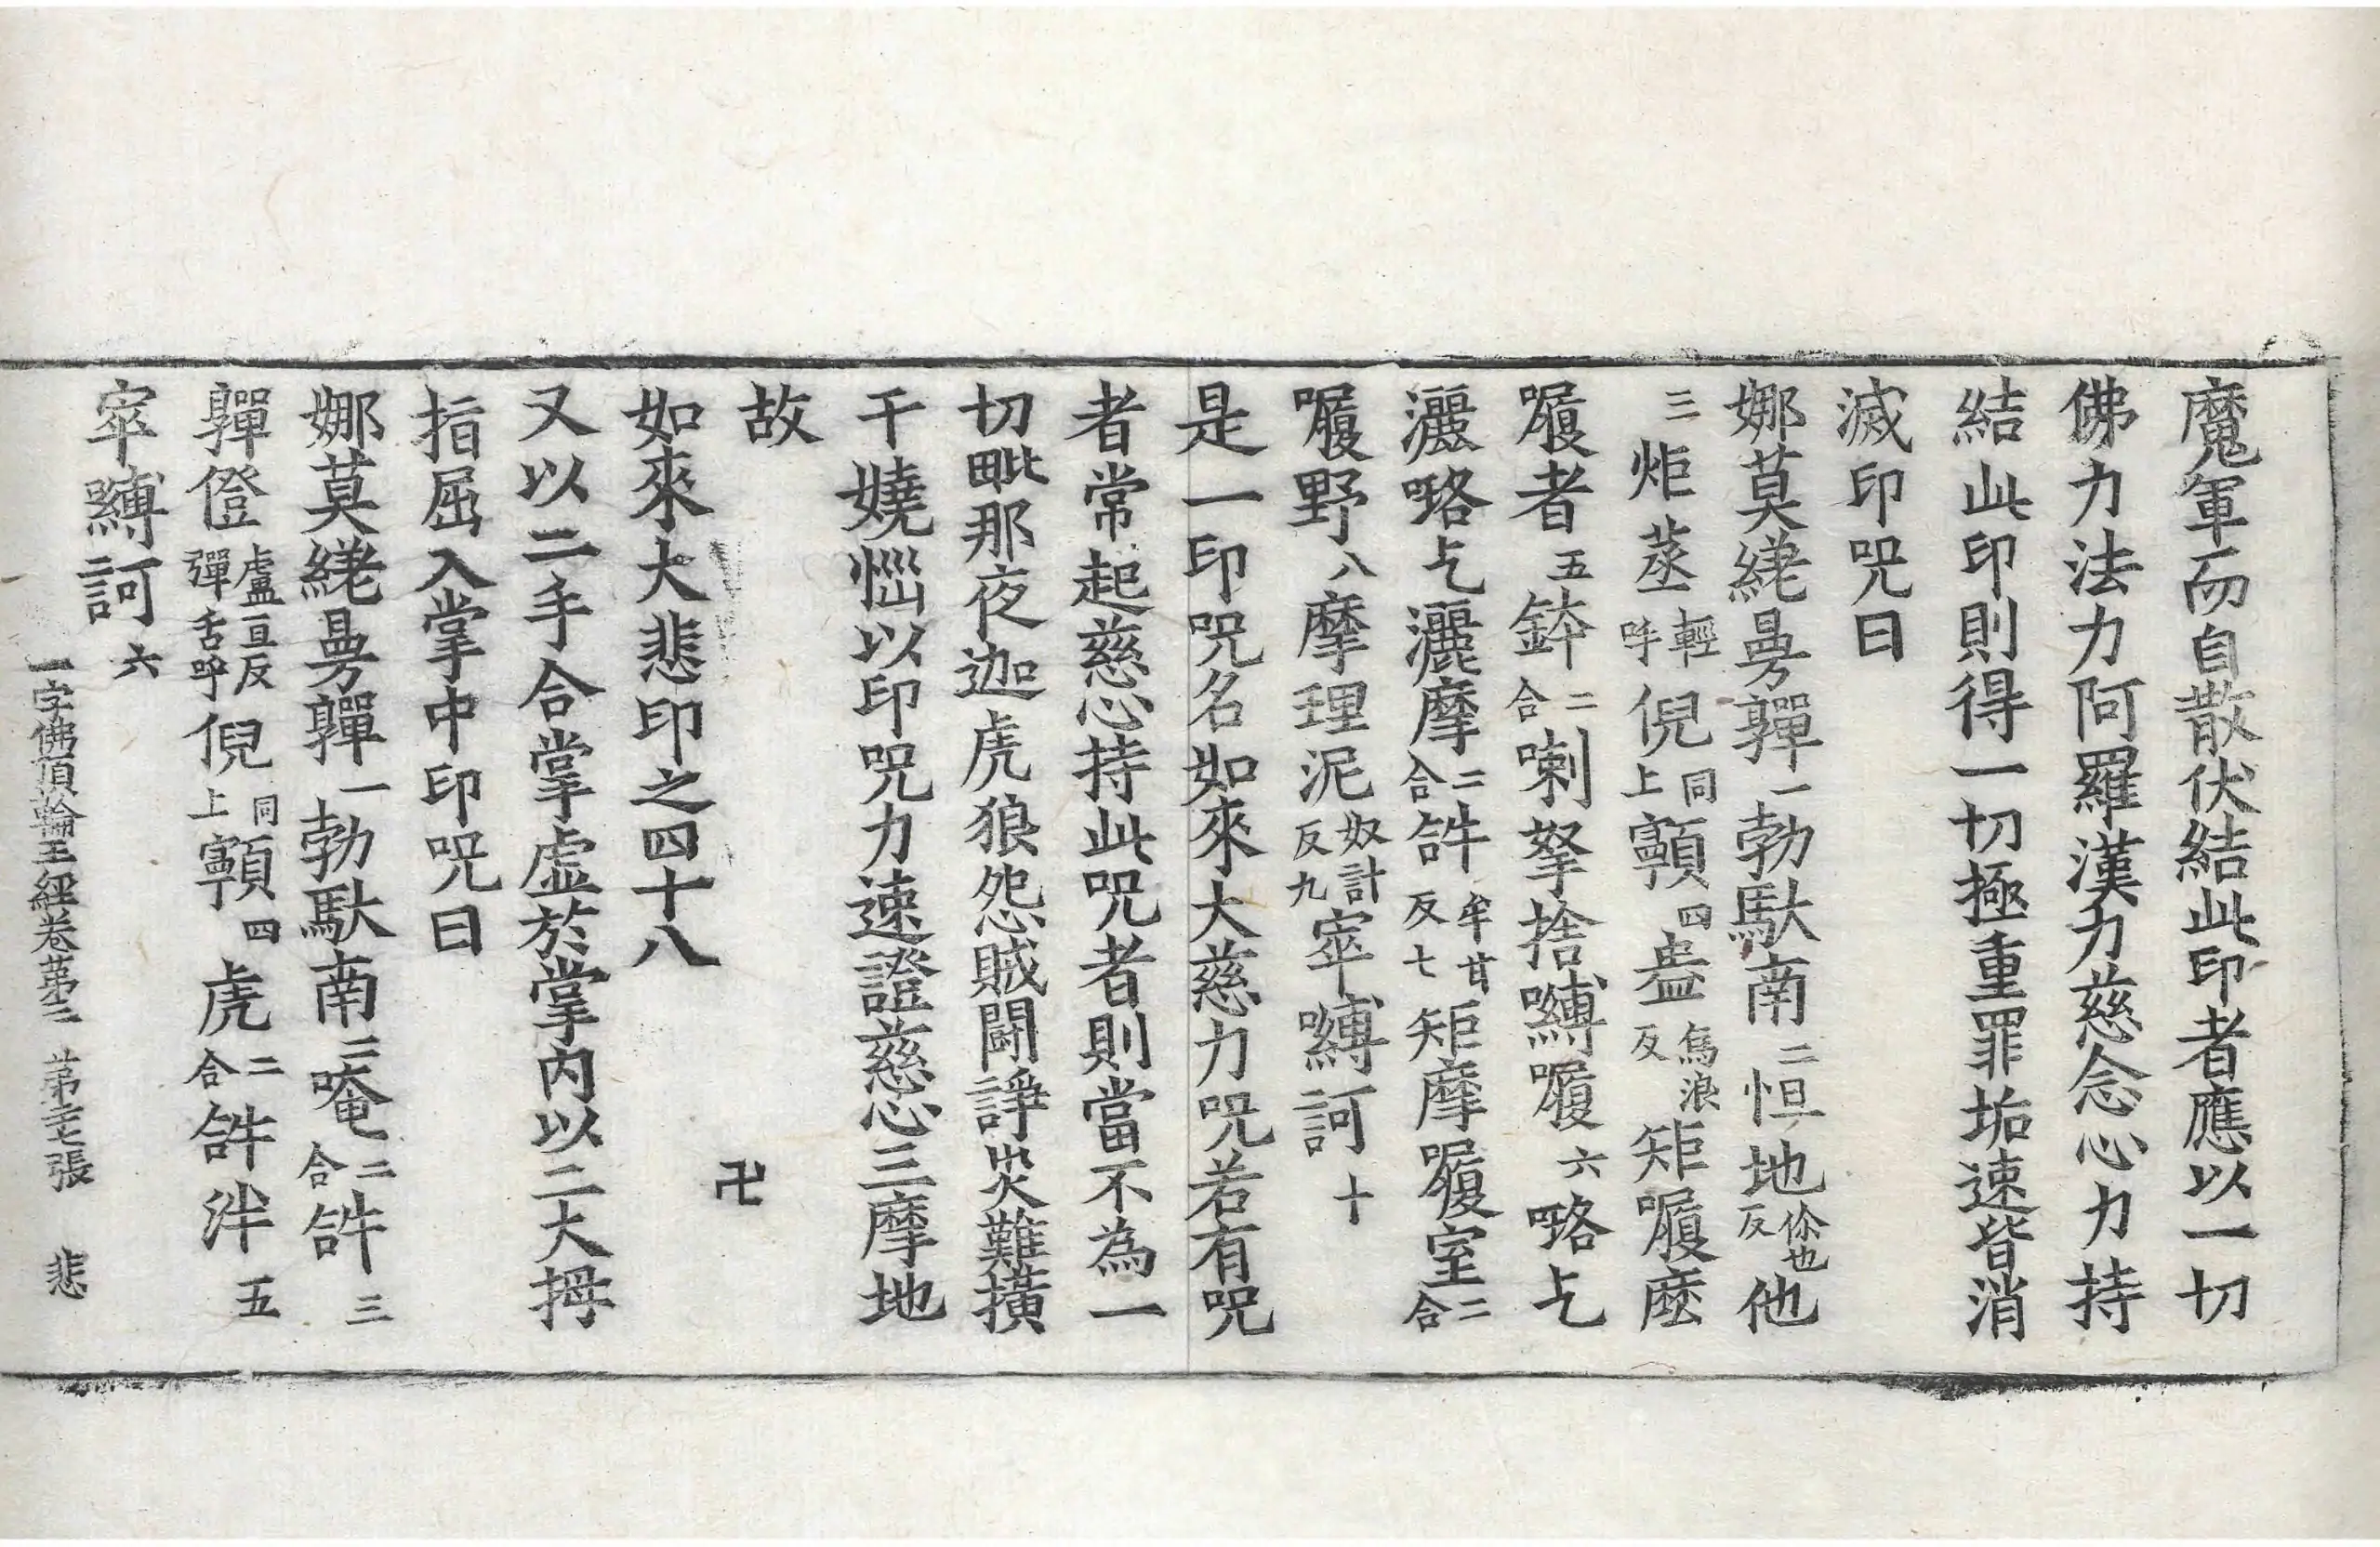 魔軍而自散伏結此印者應以一切
佛力法力阿羅漢力慈念心力持
結此印則得一切極重罪垢速皆消
滅印咒曰
娜莫縒曼嚲一勃馱南二怛地你也反他
三炬蒸輕呼儞同上四盎烏浪反矩㘑麽
㘑者五鉢二合喇拏捨嚩㘑六㗚乞
灑㗚乞灑摩二合𤙖牟甘反七矩摩㘑室二合
㘑野八摩理泥奴計反九窣嚩訶十
是一印咒名如來大慈力咒若有咒
者常起慈心持此咒者則當不為一
切毗那夜迦虎狼怨賊鬪諍災難擴
干嬈惱以印咒力速證慈心三摩地
故
卍
如來大悲印之四十八
又以二手合掌虛於掌內以二大拇
指屈入掌中印咒曰
娜莫縒曼嚲一勃馱南二唵二合𤙖三
嚲僜盧亘反彈舌呼儞同上四虎二合𤙖泮五
窣嚩訶六
一字佛頂輪王經卷第二 第二十七張 悲